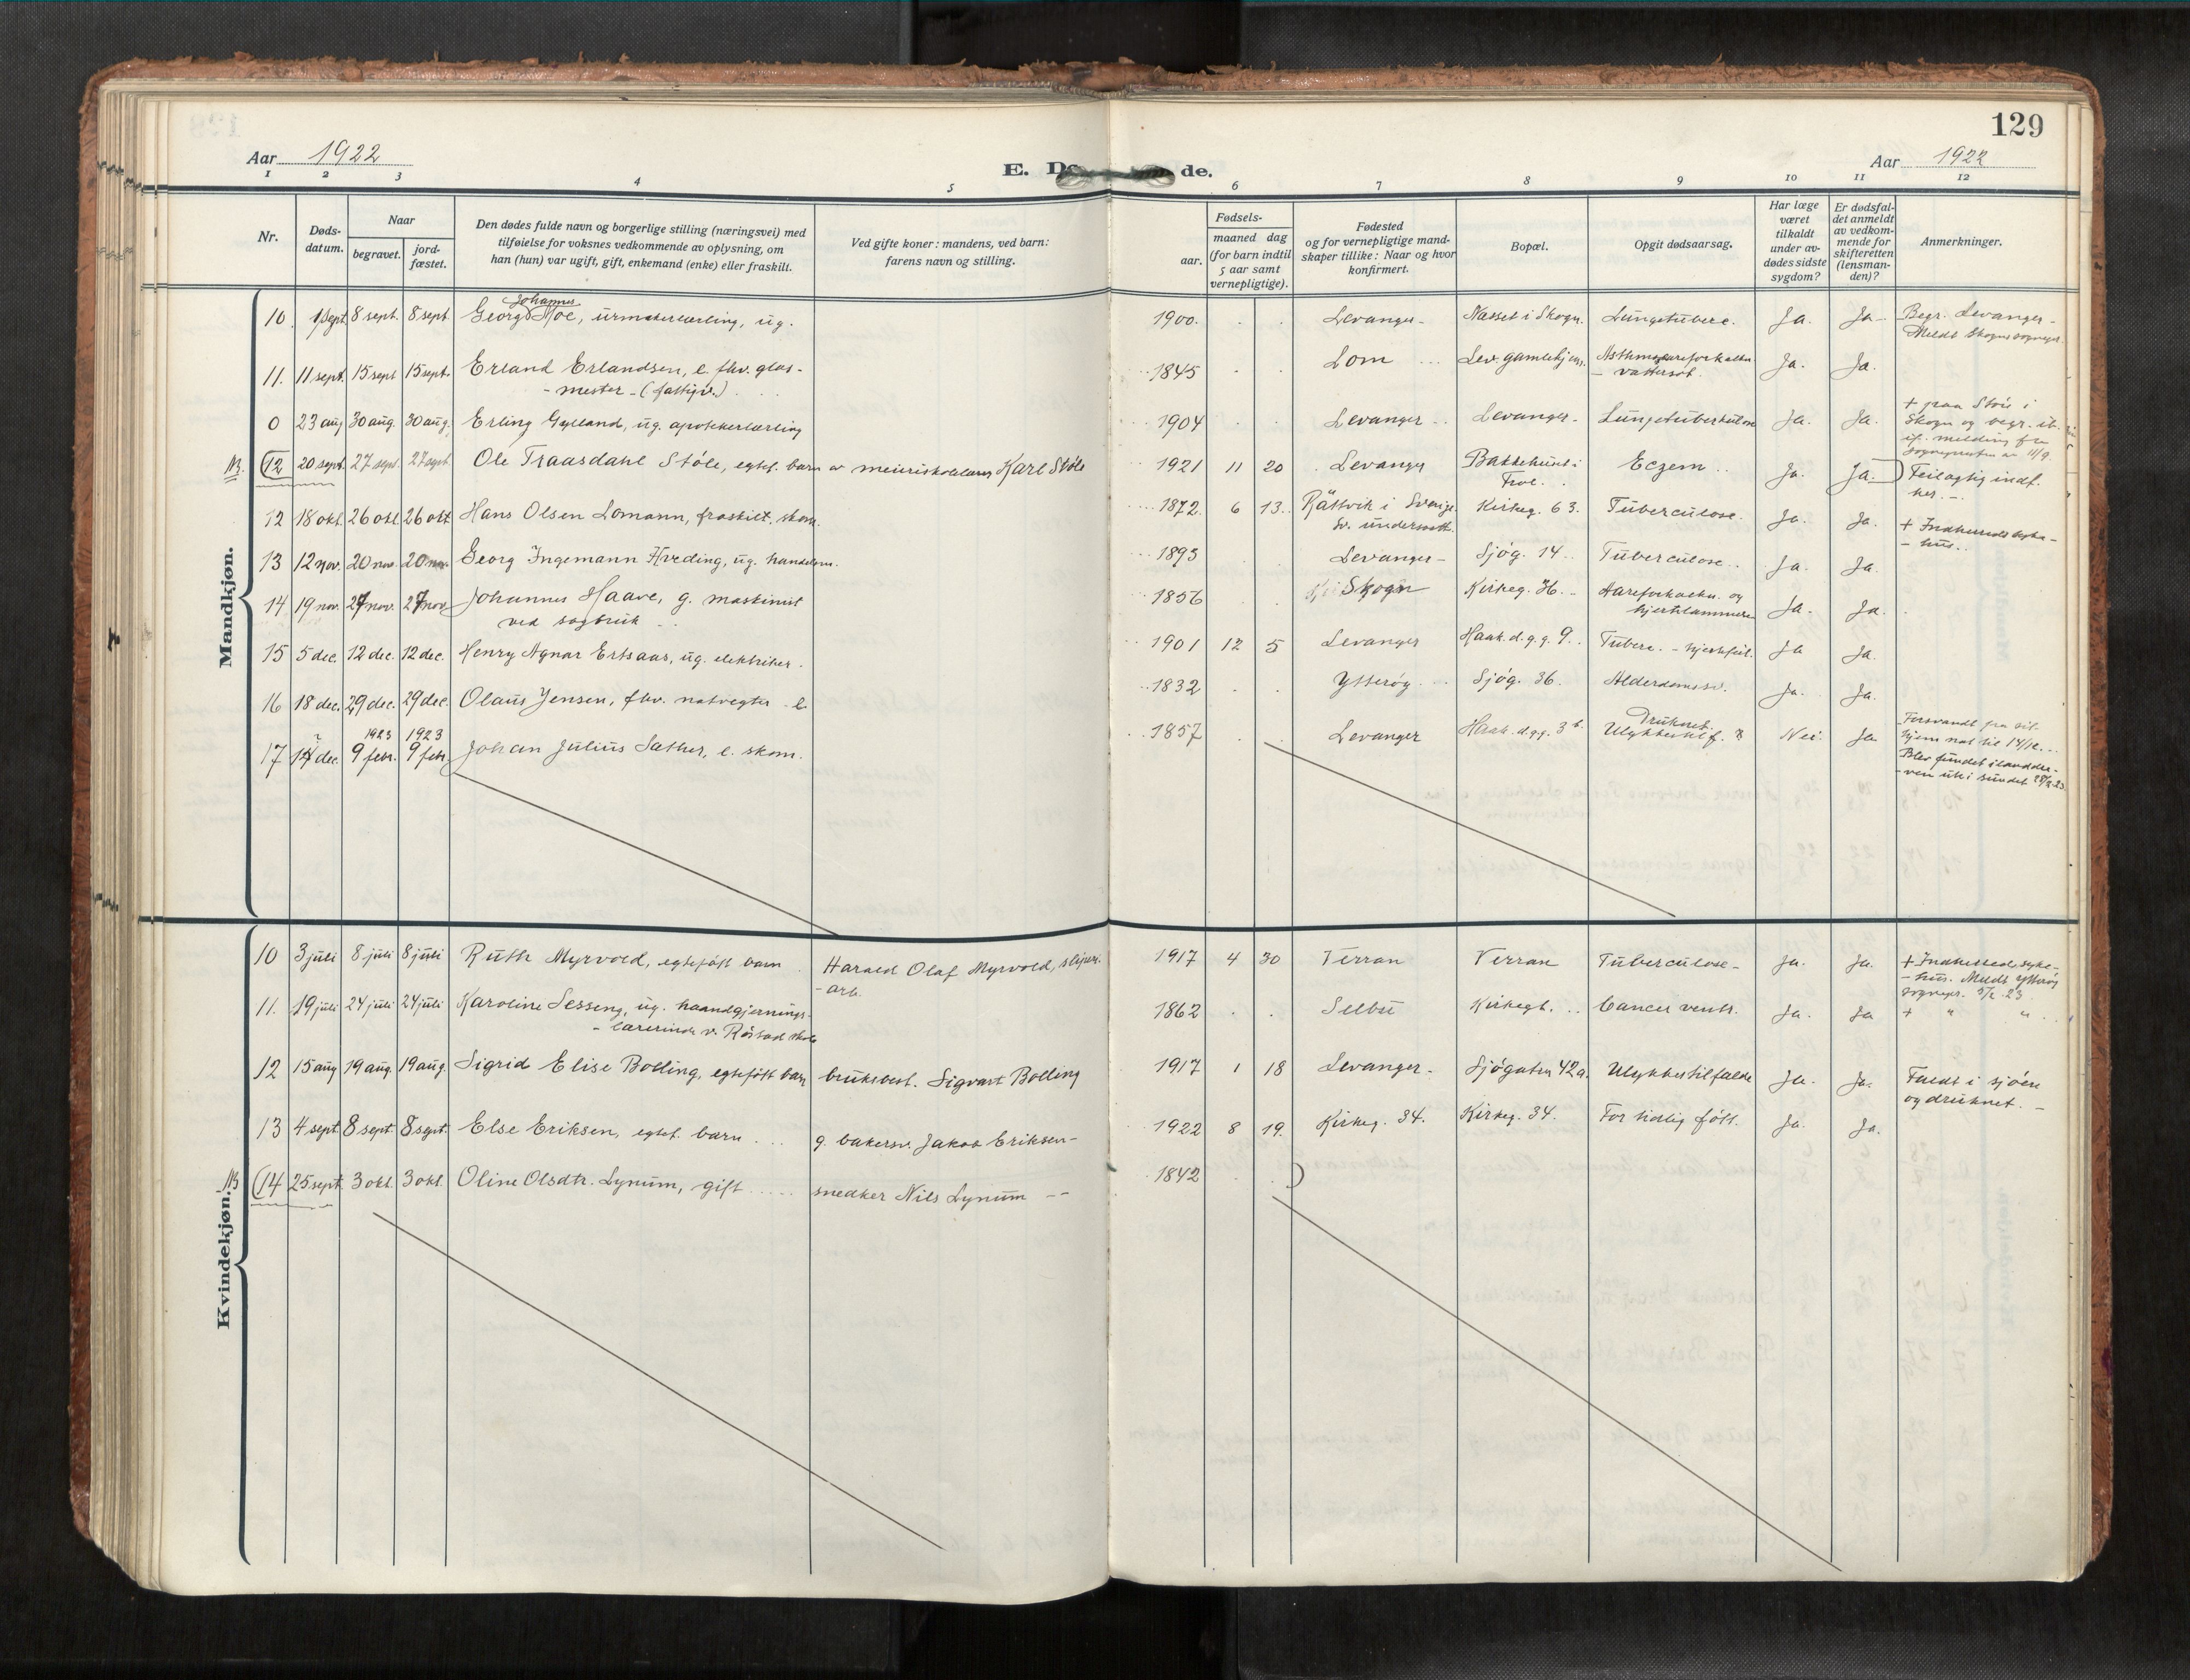 129
Aar 1922
E. Dø de.
Aar 1922
1 2 3 4 5 6 7 8 9 10 11 12
Nr.
Døds-
datum.
Naar
begravet.
jord-
fæstet.
Den dødes fulde navn og borgerlige stilling (næringsvei) med
tilføielse for voksnes vedkommende av oplysning, om
han (hun) var ugift, gift, enkemand (enke) eller fraskilt.
Ved gifte koner: mandens, ved barn:
farens navn og stilling.
Fødsels-
aar.
maaned dag
(for barn indtil
5 aar samt
vernepligtige).
Fødested
og for vernepligtige mand-
skaper tillike: Naar og hvor
konfirmert.
Bopæl.
Opgit dødsaarsag.
Har læge
været
tilkaldt
under av-
dødes sidste
sygdom?
Er dødsfal-
det anmeldt
av vedkom-
mende for
skifteretten
(lensman-
den)?
Anmerkninger.
Mandkjøn.
Johannes
10. 1 sept 8 sept. 8 sept Georg Moe, urmakerlærling, ug. 1900. Levanger - Næsset i Skogn. Lungetuberc. Ja. Ja - Begr. Levanger -
Meldt Skogn sognepr.
11. 11 sept. 15 sept 15 sept. Erland Erlandsen, e. fhv. glas- 1845 Lom Lev. gamlehjem. Ja. Ja.
- mester - (fattigv.) - vattersot.
0 23 aug 30 aug. 30 aug. Erling Gylland, ug. apothekerlærling 1904 Levanger Levanger - Lungetuberkulose Ja. Ja. + paa Støre i
Skogn og begr. ib.
if. melding fra
sognepresten av 11/9.
NB. (12 20 sept. 27 sept. 27 sept. Ole Traasdahl Støle, egtef. barn av meieriskolelærer Karl Støle 1921 11 20 Levanger Bakkehuns i Eczem Ja. Ja.) Feilagtig indf.
Frol. her. -
12 18 okt. 26 okt 26 okt Hans Olsen Lomann, fraskilt, skom. 1872. 6 13. Rättvik i Sverige Kirkeg. 63. Tuberculose. Ja. Ja. + Indherreds syke-
sv. undersaatt. - hus.
13 12 nov. 20 nov. 20 nov. Georg Ingemann Hveding, ug. handelsm. 1893 Levanger - Sjøg. 14 Tuberculose Ja. Ja.
14 19 nov. 27 nov. 27 nov Johannes Haave, g. maskinist 1856 Skogn Kirkeg. 36. Aareforkalkn. og Ja. Ja.
ved sagbruk hjertelammelse
15 5 dec. 12 dec. 12 dec. Henry Agnar Ertsaas, ug. elektriker. 1901 12 5 Levanger Haak. d. g. g. 9. Tuberc. - hjertefeil. Ja Ja.
16 18 dec. 29 dec. 29 dec. Olaus Jensen, fhv. natvegter e. 1832 Ytterøy. Sjøg. 36. Alderdomssv. Ja. Ja.
1923 1923 Druknet
17 14 dec. 9 febr. 9 febr. Johan Julius Sæther, e. skom. 1857 Levanger Haak. d. g. g. 3 b. Ulykkestilf. ? Nei. Ja Forsvandt fra sit
hjem nat til 14/12.
Blev fundet ilanddre-
ven ute i sundet 28/1 23.
Kvindekjøn.
10 3 juli 8 juli 8 juli Ruth Myrvold, egtefødt barn Harald Olaf Myrvold, sliperi- 1917 4 30 Verran Verran Tuberculose - Ja. Ja. + Indherred syke-
- arb. - hus. Meldt Ytterøy
sognepr. 5/2 23
11. 19 juli 24 juli 24 juli Karoline Sesseng, ug. haandgjernings- 1862 Selbu Kirkegt. Cancer ventr. Ja. Ja + " "
- lærerinde v. Røstad skole
12 15 aug 19 aug. 19 aug. Sigrid Elise Bolling, egtefødt barn bruksbest. Sigvart Bolling 1917 1 18 Levanger - Sjøgaten 42a. Ulykkestilfælde Ja. Ja. Faldt i sjøen
og druknet. -
13 4 sept 8 sept. 8 sept. Else Eriksen, egtef. barn g. bakersv. Jakob Eriksen - 1922 8 19. Kirkeg. 34. Kirkeg. 34. For tidlig født. Ja. Ja.
NB (14 25 sept. 3 okt. 3 okt. Oline Olsdtr. Lynum, gift snedker Nils Lynum -- 1842 )